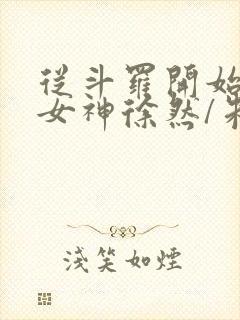 從斗羅開始
女神徐然/
淺笑如煙